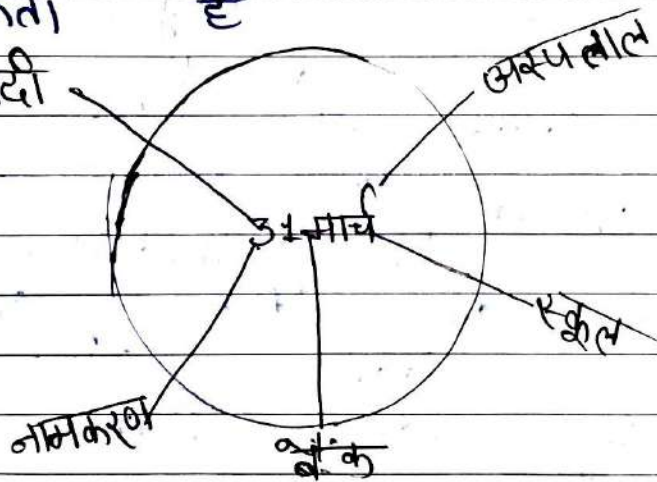 है
अस्पताल
31 मार्च
स्कूल
नामकरण
बैंक